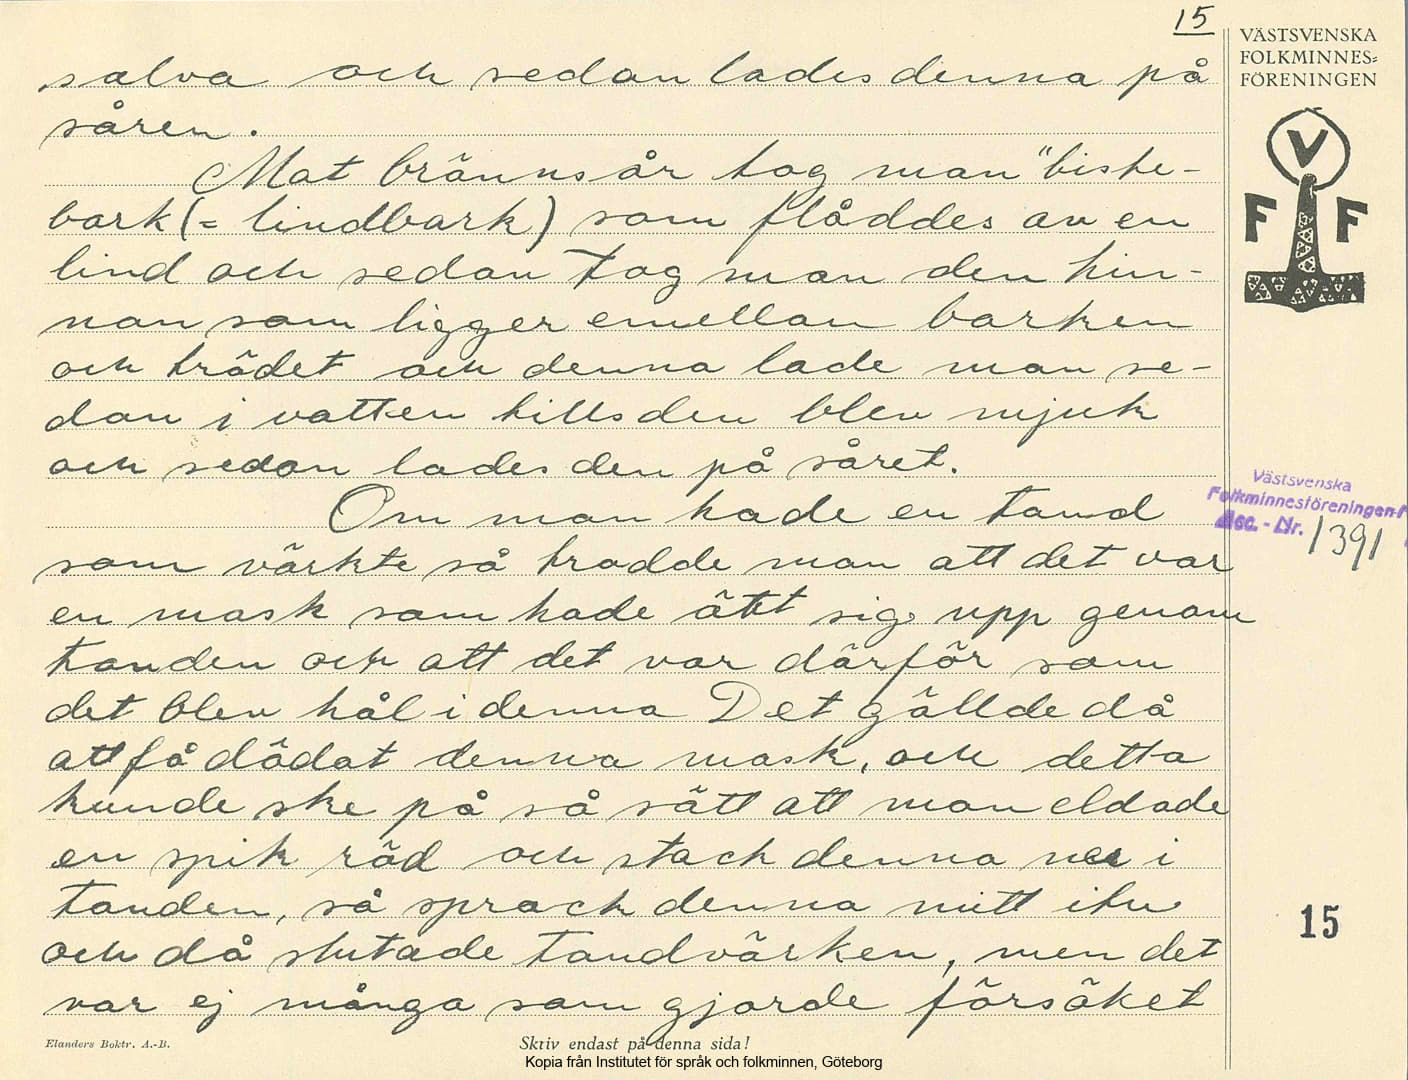 15
VÄSTSVENSKA
FOLKMINNES=
FÖRENINGEN
V
F F
salva och sedan lades denna på
såren.
Mot brännsår tog man "biste-
bark (= lindbark) som flåddes av en
lind och sedan tog man den hin-
nan som ligger emellan barken
och trädet och denna lade man se-
dan i vatten tills den blev mjuk
och sedan lades den på såret.
Om man hade en tand
som värkte så trodde man att det var
en mask som hade ätit sig upp genom
tanden och att det var därför som
det blev hål i denna Det gällde då
att få dödat denna mask, och detta
kunde ske på så sätt att man eldade
en spik röd och stack denna ner i
tanden, så sprack denna mitt itu
och då slutade tandvärken, men det
var ej många som gjorde försöket
Västsvenska
Folkminnesföreningen
Acc. - Nr. 1391
15
Elanders Boktr. A.-B.
Skriv endast på denna sida!
Kopia från Institutet för språk och folkminnen, Göteborg